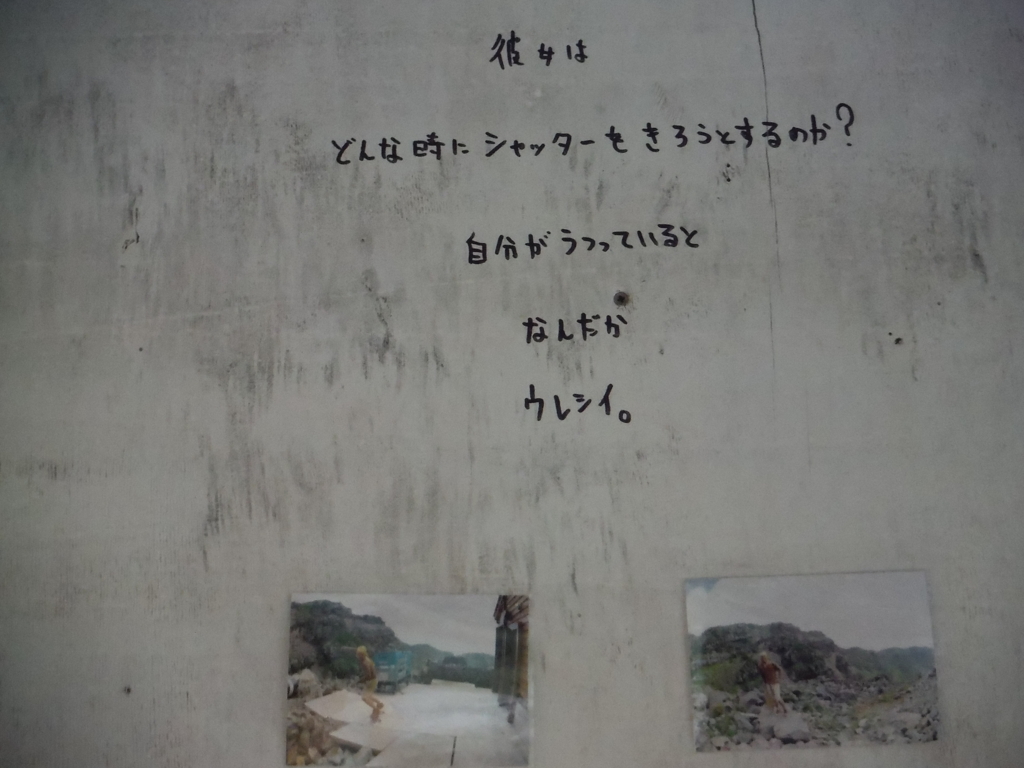 彼女は
どんな時にシャッターをきろうとするのか?
自分がうつっていると
なんだか
ウレシイ。